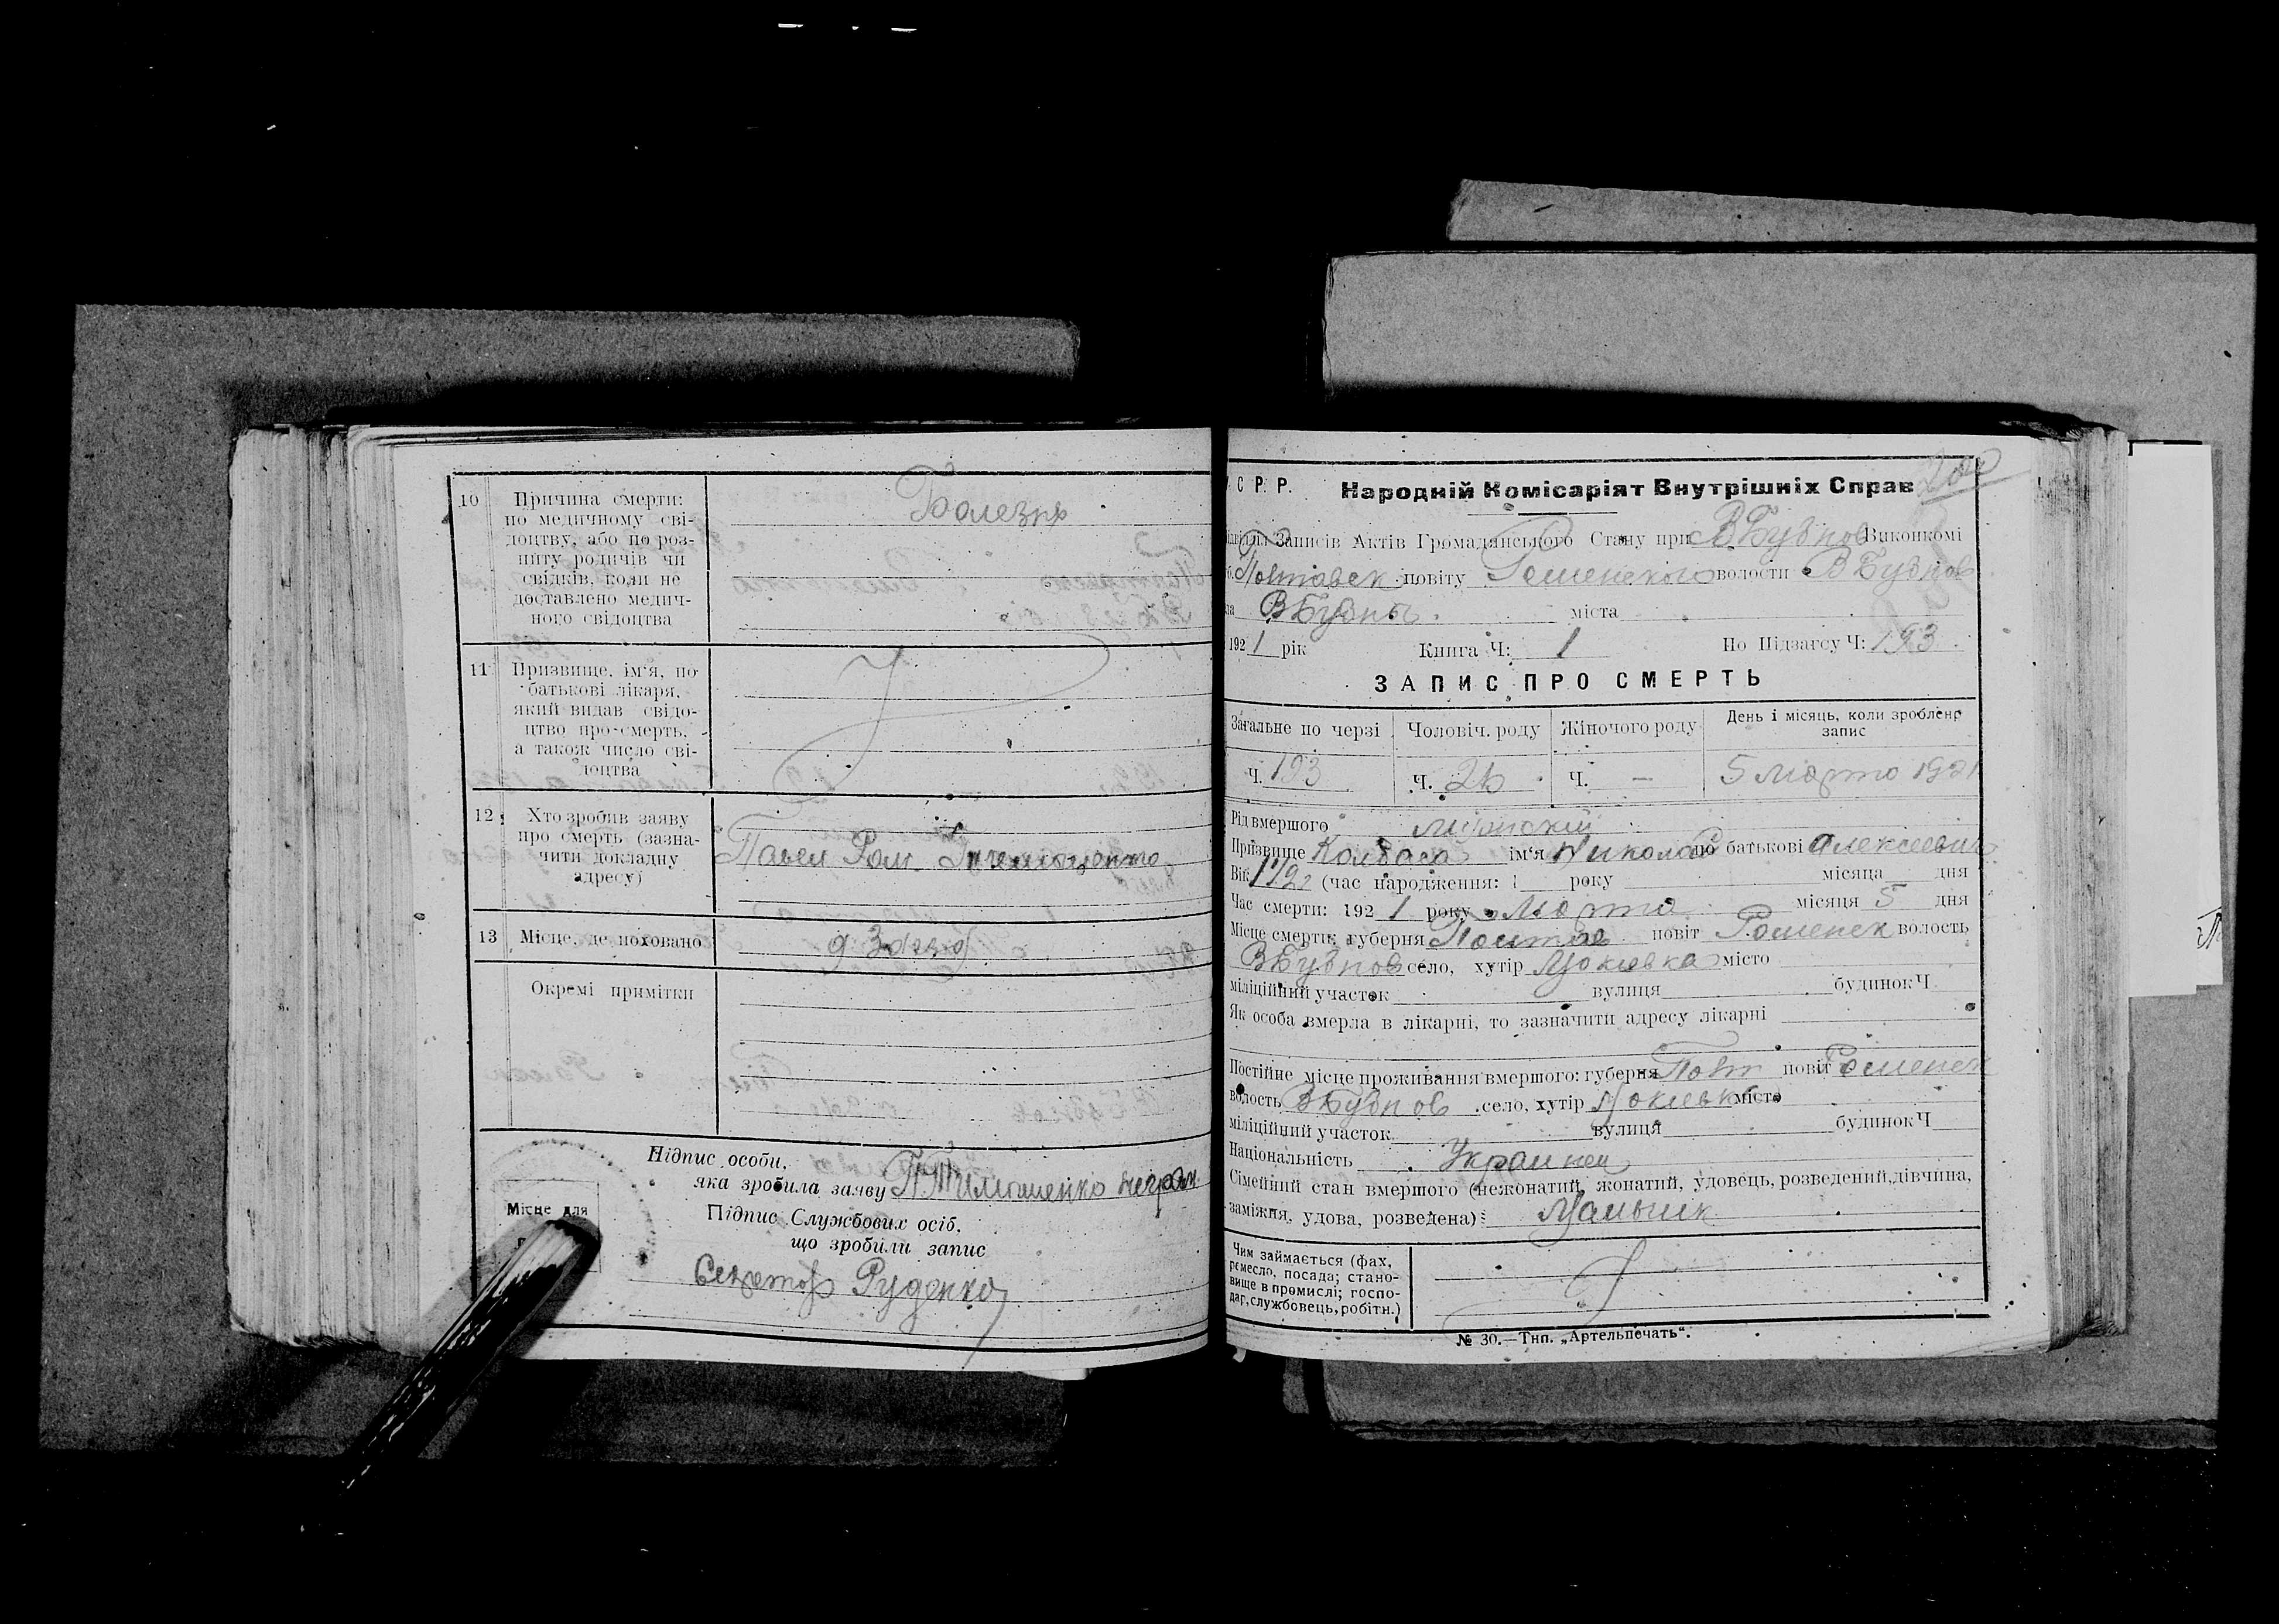 10 Причина смерти:
по медичному сві-
доцтву, або по роз-
питу родичів чи
свідків, коли не
доставлено медич-
ного свідоцтва
Болезнь
11 Призвище, ім'я, по
батькові лікаря,
який видав свідо-
цтво про смерть,
а також число сві-
доцтва
12 Хто зробив заяву
про смерть (зазна-
чити докладну
адресу)
Павел Ром. Тимошенко
13 Місце, де поховано
Окремі примітки
Підпис особи,
яка зробила заяву П Тимошенко неграм
Підпис Службових осіб,
що зробили запис
Місце для
Секретарь Руденко
С Р. Р. Народній Комісаріят Внутрішніх Справ 200
Записів Актів Громадянського Стану при ВБубнов Виконкомі
Полтавск повіту Роменского волости ВБубнов
ВБубны міста
1921 рік Книга Ч: 1 По Підзагсу Ч: 193
ЗАПИС ПРО СМЕРТЬ
Загальне по черзі Чоловіч. роду Жіночого роду День і місяць, коли зроблено
запис
Ч. 193 Ч. 26 Ч. — 5 Марта 1921
Рід вмершого Мужской
Призвище Колбаса ім'я Николай по батькові Алексеевич
Вік 1 1/2 г (час народження: 1 року місяца дня
Час смерти: 1921 року Марта місяця 5 дня
Місце смерти: губерня Полтав повіт Роменск волость
ВБубнов село, хутір місто
міліційний участок вулиця будинок Ч
Як особа вмерла в лікарні, то зазначити адресу лікарні
Постійне місце проживання вмершого: губерня Полт повіт Роменск
волость ВБубнов село, хутір місто
міліційний участок вулиця будинок Ч
Національність Украинец
Сімейний стан вмершого (нежонатий, жонатий, удовець, розведений, дівчина,
заміжня, удова, розведена): Мальчик
Чим займається (фах,
ремесло, посада; стано-
вище в промислі; госпо-
дар, службовець, робітн.)
№ 30.—Тип. „Артельпечать".